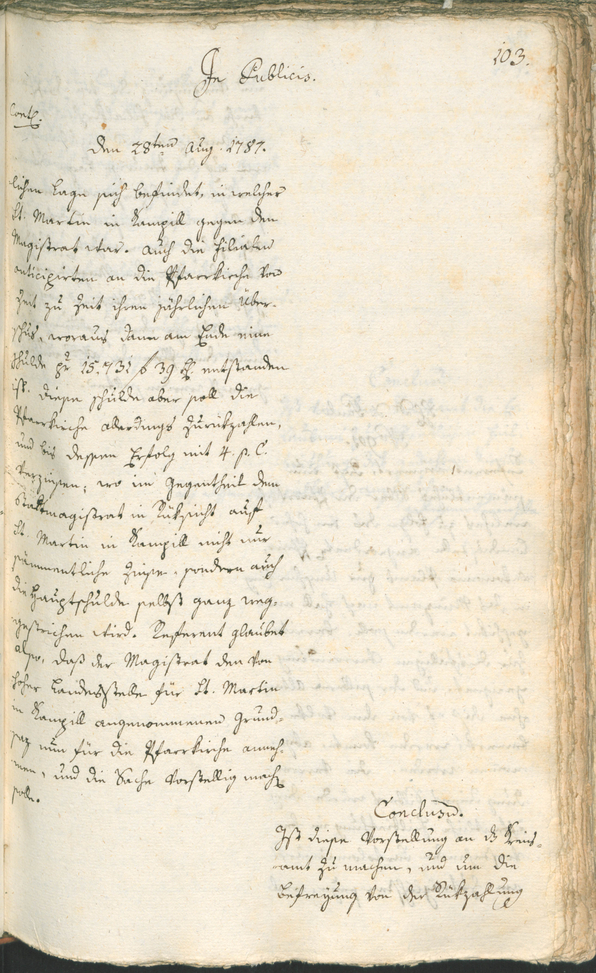 103.
In Publicis.
Cont.
den 28ten Aug. 1787.
lichen Lage sich befindet, in welcher
St. Martin in Kampill gegen den
Magistrat war. Auch die Filialen
anticipirten an die Pfarrkirche von
Zeit zu Zeit ihren jährlichen Über-
schus, woraus dann am Ende eine
Schulde pr 15.731 f 39 xr. entstanden
ist. Diese Schulde aber soll die
Pfarrkirche allerdings zurückzahlen,
und bis dessen Erfolg mit 4. p. C.
verzinsen; wo im Gegentheil dem
Stadtmagistrat in Rüksicht auf
St. Martin in Kampill nicht nur
sammentliche Zinse, sondern auch
die Hauptschulde selbst ganz weg-
gestrichen wird. Referent glaubet
also, daß der Magistrat den von
hoher Landesstelle für St. Martin
in Kampill angenommenen Grund-
saz nun für die Pfarrkirche anneh-
men, und die Sache vorstellig machen
solle.
Conclusum.
Ist diese Vorstellung an das Kreis-
amt zu machen, und um die
Befreyung von der Rükzahlung